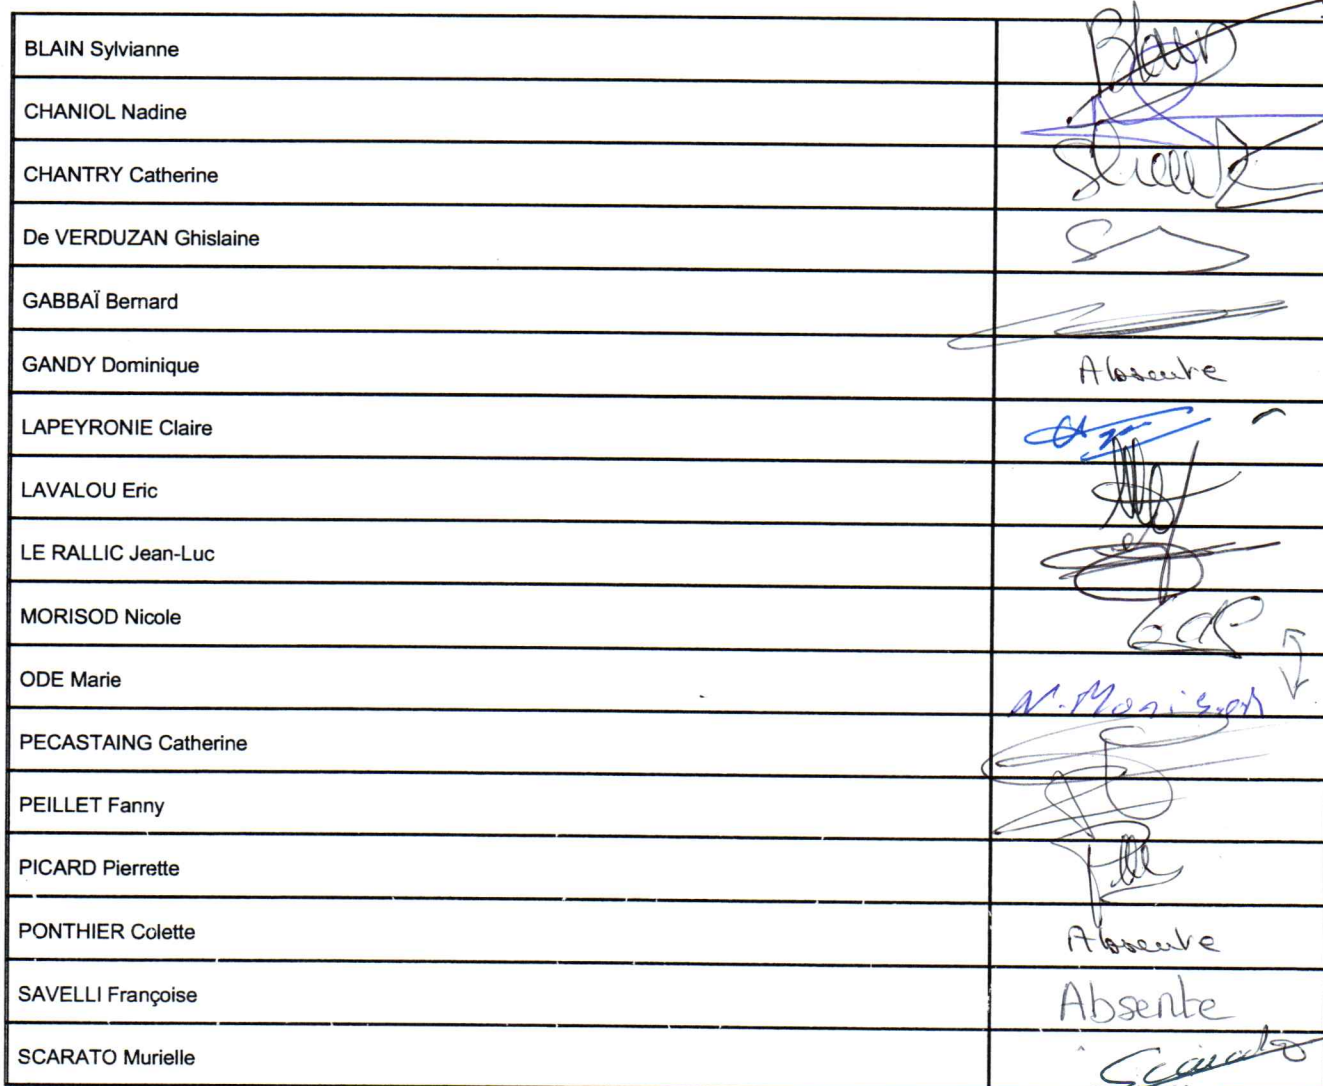 BLAIN Sylvianne Blain
CHANIOL Nadine
CHANTRY Catherine
De VERDUZAN Ghislaine
GABBAÏ Bernard
GANDY Dominique Absente
LAPEYRONIE Claire
LAVALOU Eric
LE RALLIC Jean-Luc
MORISOD Nicole
ODE Marie N. Morisod
PECASTAING Catherine
PEILLET Fanny
PICARD Pierrette
PONTHIER Colette Absente
SAVELLI Françoise Absente
SCARATO Murielle Scarato